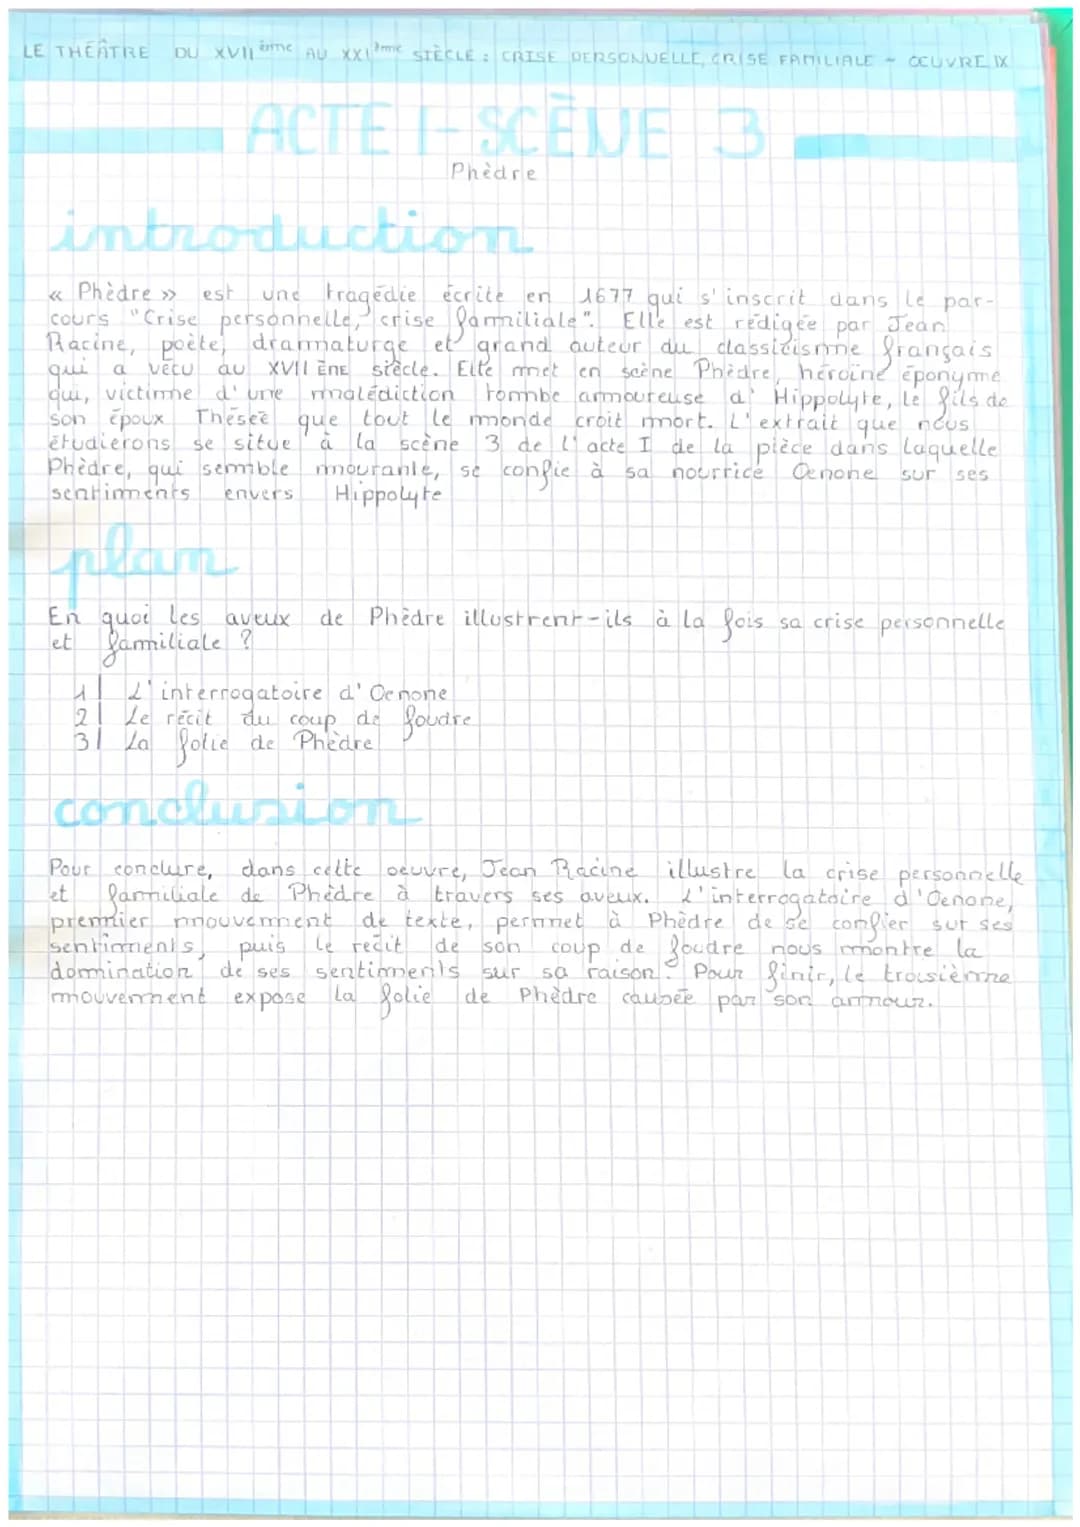 LE THÉÂTRE DU XVIIème AU XXIème SIÈCLE : CRISE PERSONNELLE, CRISE FAMILIALE - OEUVRE IX
ACTE I - SCÈNE 3
Phèdre
introduction
« Phèdre » est une tragédie écrite en 1677 qui s'inscrit dans le par-
cours "Crise personnelle, crise familiale". Elle est rédigée par Jean
Racine, poète, dramaturge et grand auteur du classicisme français
qui a vécu au XVII ÈNE siècle. Elle met en scène Phèdre, héroïne éponyme
qui, victime d'une malédiction tombe amoureuse d'Hippolyte, le fils de
son époux Thésée que tout le monde croit mort. L'extrait que nous
étudierons se situe à la scène 3 de l'acte I de la pièce dans laquelle
Phèdre, qui semble mourante, se confie à sa nourrice Oenone sur ses
sentiments envers Hippolyte
plan
En quoi les aveux de Phèdre illustrent-ils à la fois sa crise personnelle
et familiale ?
1| L'interrogatoire d'Oenone
2| Le récit du coup de foudre
3| La folie de Phèdre
conclusion
Pour conclure, dans cette oeuvre, Jean Racine illustre la crise personnelle
et familiale de Phèdre à travers ses aveux. L'interrogatoire d'Oenone,
premier mouvement de texte, permet à Phèdre de se confier sur ses
sentiments, puis le récit de son coup de foudre nous montre la
domination de ses sentiments sur sa raison. Pour finir, le troisième
mouvement expose la folie de Phèdre causée par son amour.